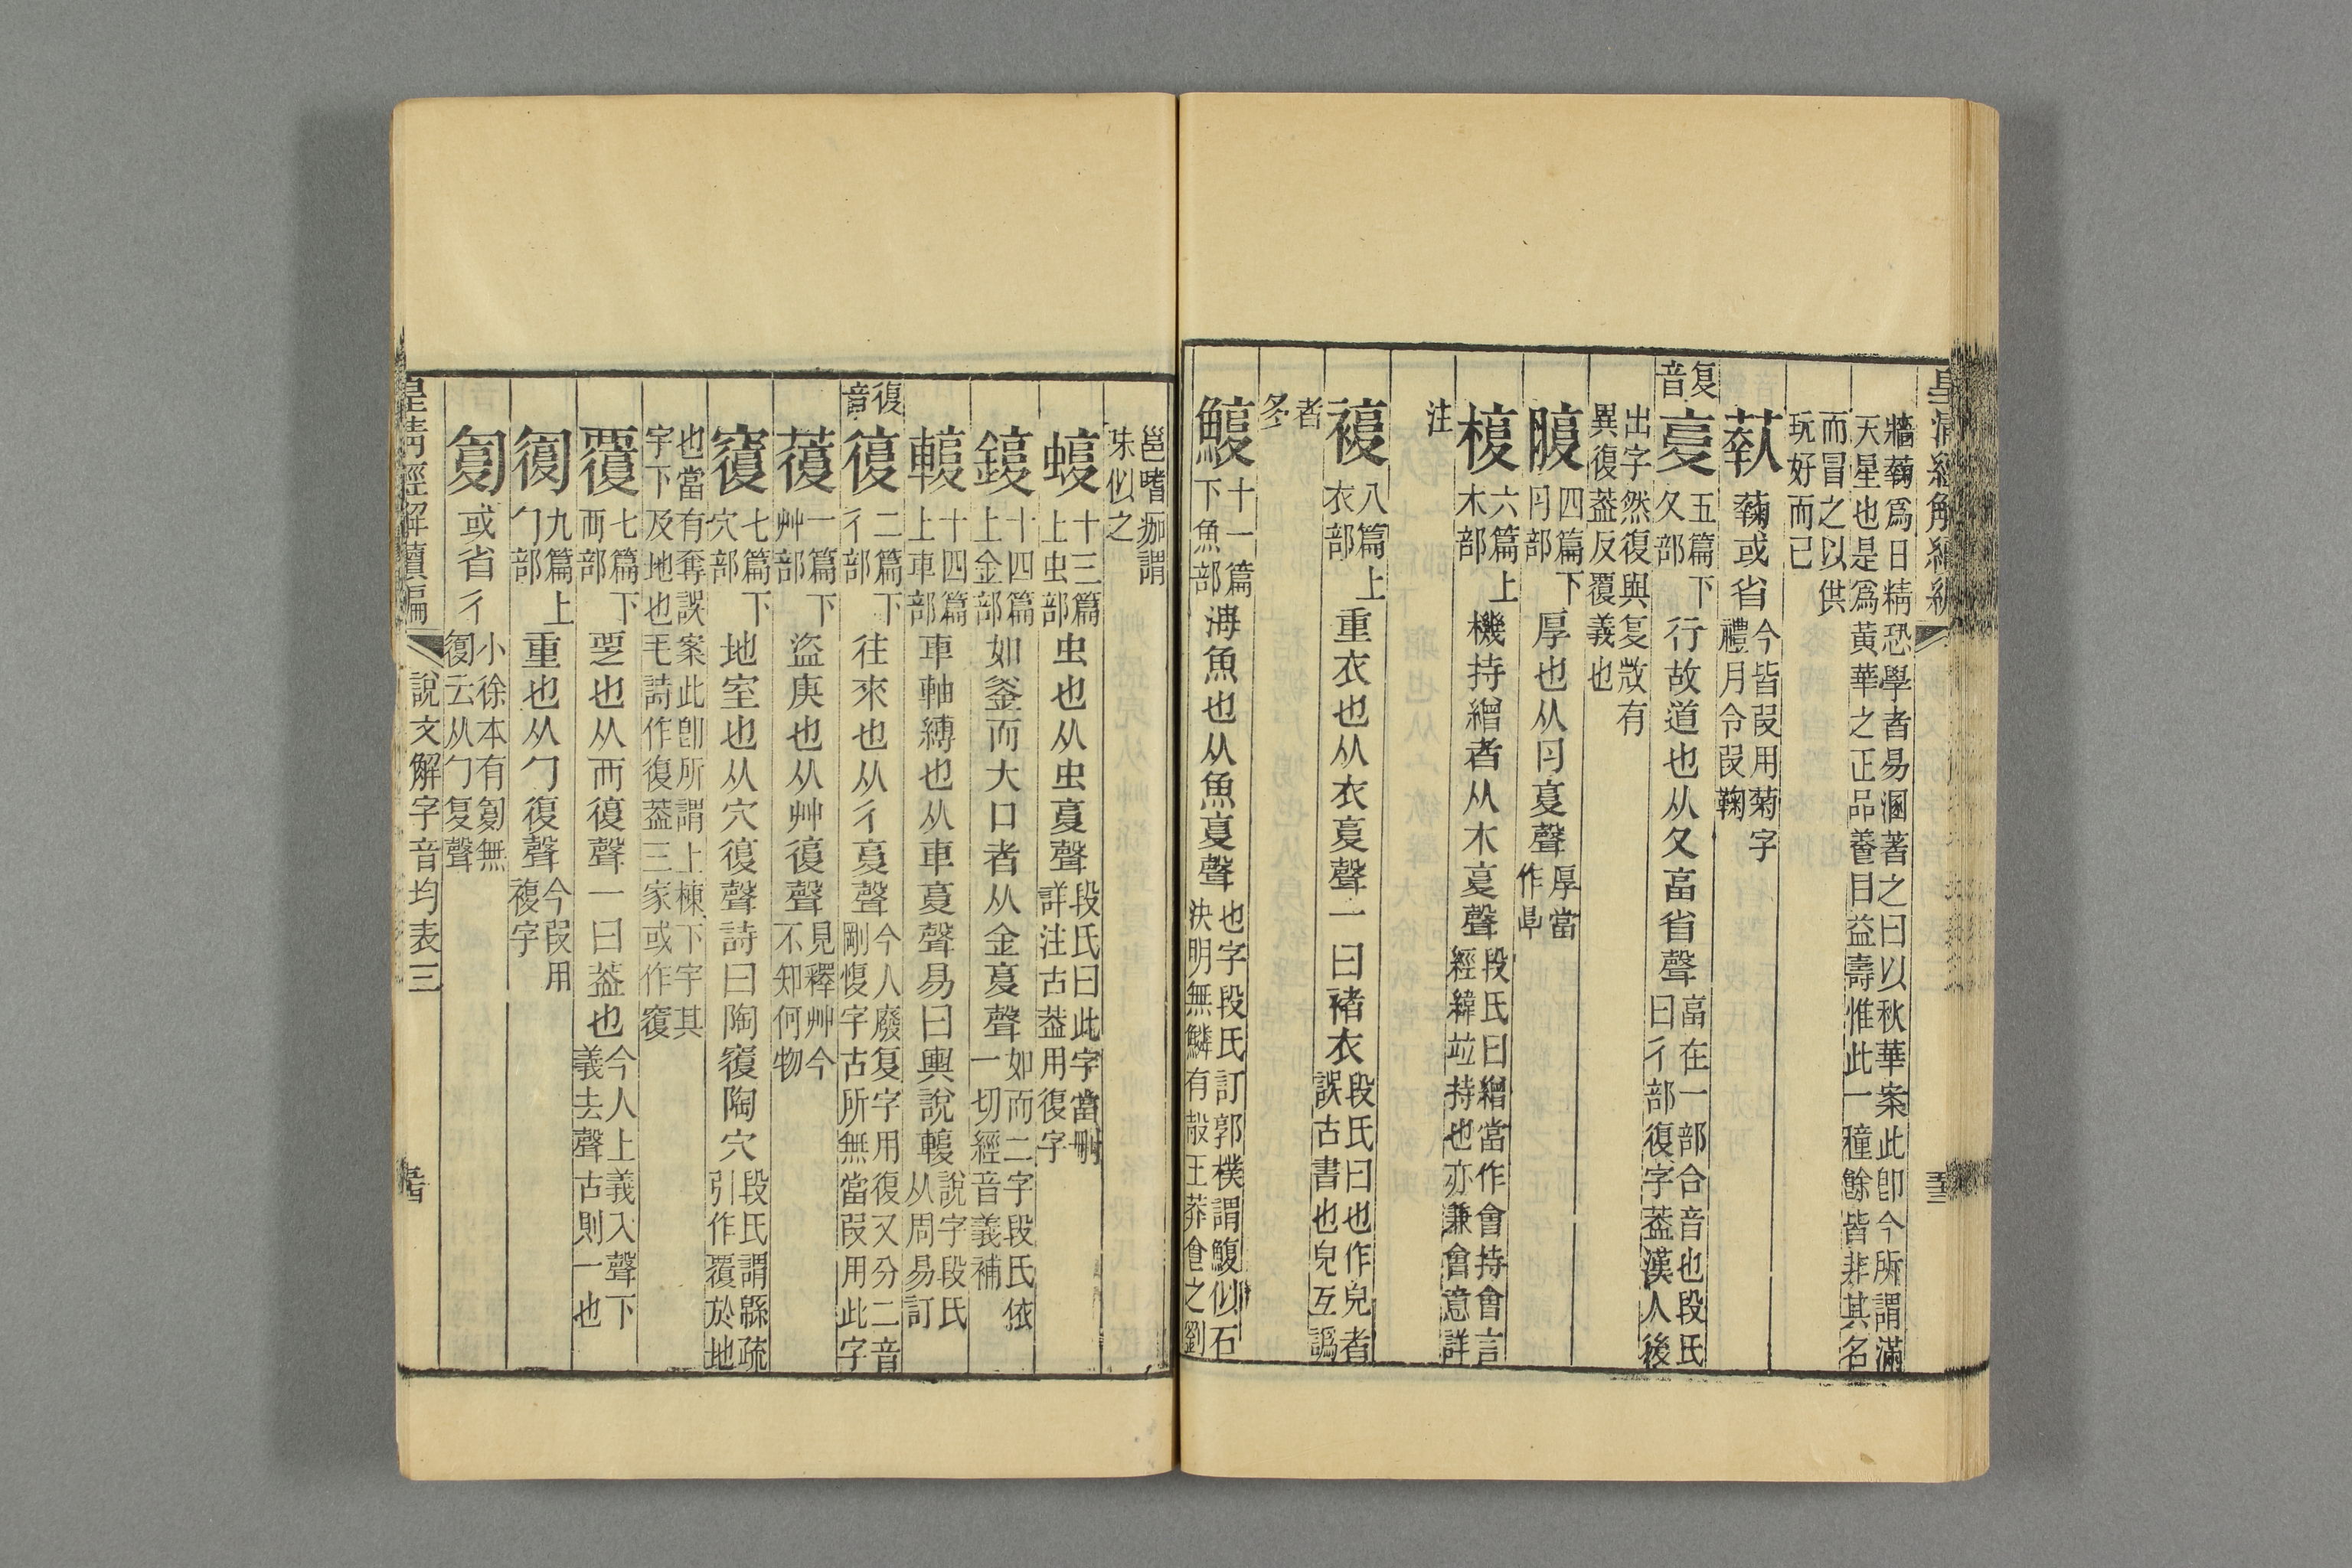 牆蘜爲日精恐學者易溷著之曰以秋華案此卽今所謂滿
天星也是爲黃華之正品養目益壽惟此一穜餘皆非其名
而冒之以供
玩好而已
蘜或省
今皆叚用菊字
禮月令叚鞠
复音
五篇下
夊部
行故道也从夊畗省聲
畗在一部合音也段氏
曰彳部復字葢漢人後
出字然復與复㪚有
異復葢反覆義也
四篇下
⺼部
厚也从⺼复聲
厚當
作𣆪
六篇上
木部
機持繒者从木复聲
段氏曰繒當作會持會言
經緯竝持也亦兼會意詳
注
八篇上
衣部
重衣也从衣复聲一曰褚衣
段氏曰也作皃者
誤古書也皃互譌
者
多
十一篇
下魚部
海魚也从魚复聲
也字段氏訂郭樸謂鰒似石
決明無鱗有殼王莽飡之劉
邕嗜痂謂
味似之
十三篇
上虫部
虫也从虫复聲
段氏曰此字當刪
詳注古葢用復字
十四篇
上金部
如釜而大口者从金复聲
如而二字段氏依
一切經音義補
十四篇
上車部
車軸縛也从車复聲易曰輿說輹
說字段氏
从周易訂
復音
復
二篇下
彳部
往來也从彳复聲
今人廢复字用復又分二音
剛愎字古所無當叚用此字
蕧
一篇下
艸部
盜庚也从艸復聲
見釋艸今
不知何物
七篇下
穴部
地室也从穴復聲詩曰陶㚆陶穴
段氏謂緜疏
引作覆於地
也當有奪誤案此卽所謂上棟下宇其
字下及地也毛詩作復葢三家或作㚆
覆
七篇下
襾部
覂也从襾復聲一曰葢也
今人上義入聲下
義去聲古則一也
九篇上
勹部
重也从勹復聲
今叚用
複字
或省彳
小徐本有匎無
匎云从勹复聲
皇清經解續編
說文解字音均表三